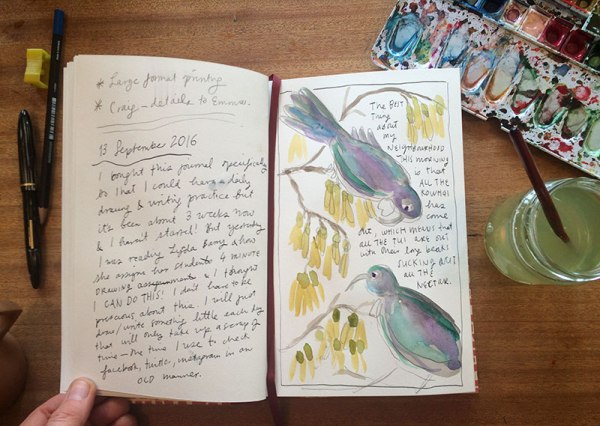 * Large format printing
* Craig - details to Emma.
13 September 2016
I bought this journal specifically
so that I could have a daily
drawing & writing practice but
it's been about 3 weeks now
& I havent started! But yesterday
I was reading Lynda Barry & how
she assigns her students 4 MINUTE
DRAWING assignments & I thought
I CAN DO THIS! I don't have to be
precious about this. I will just
draw/write something little each day
that will only take up a scrap of
time - the time I use to check
facebook, twitter, instagram in an
OCD manner.
The BEST
Thing
about
my
NEIGHBOURHOOD
THIS MORNING
is that
ALL THE
KOWHAI
has
come
out, WHICH MEANS that
all THE TUI ARE OUT
with their long beaks
SUCKING OUT
all THE
NECTAR.